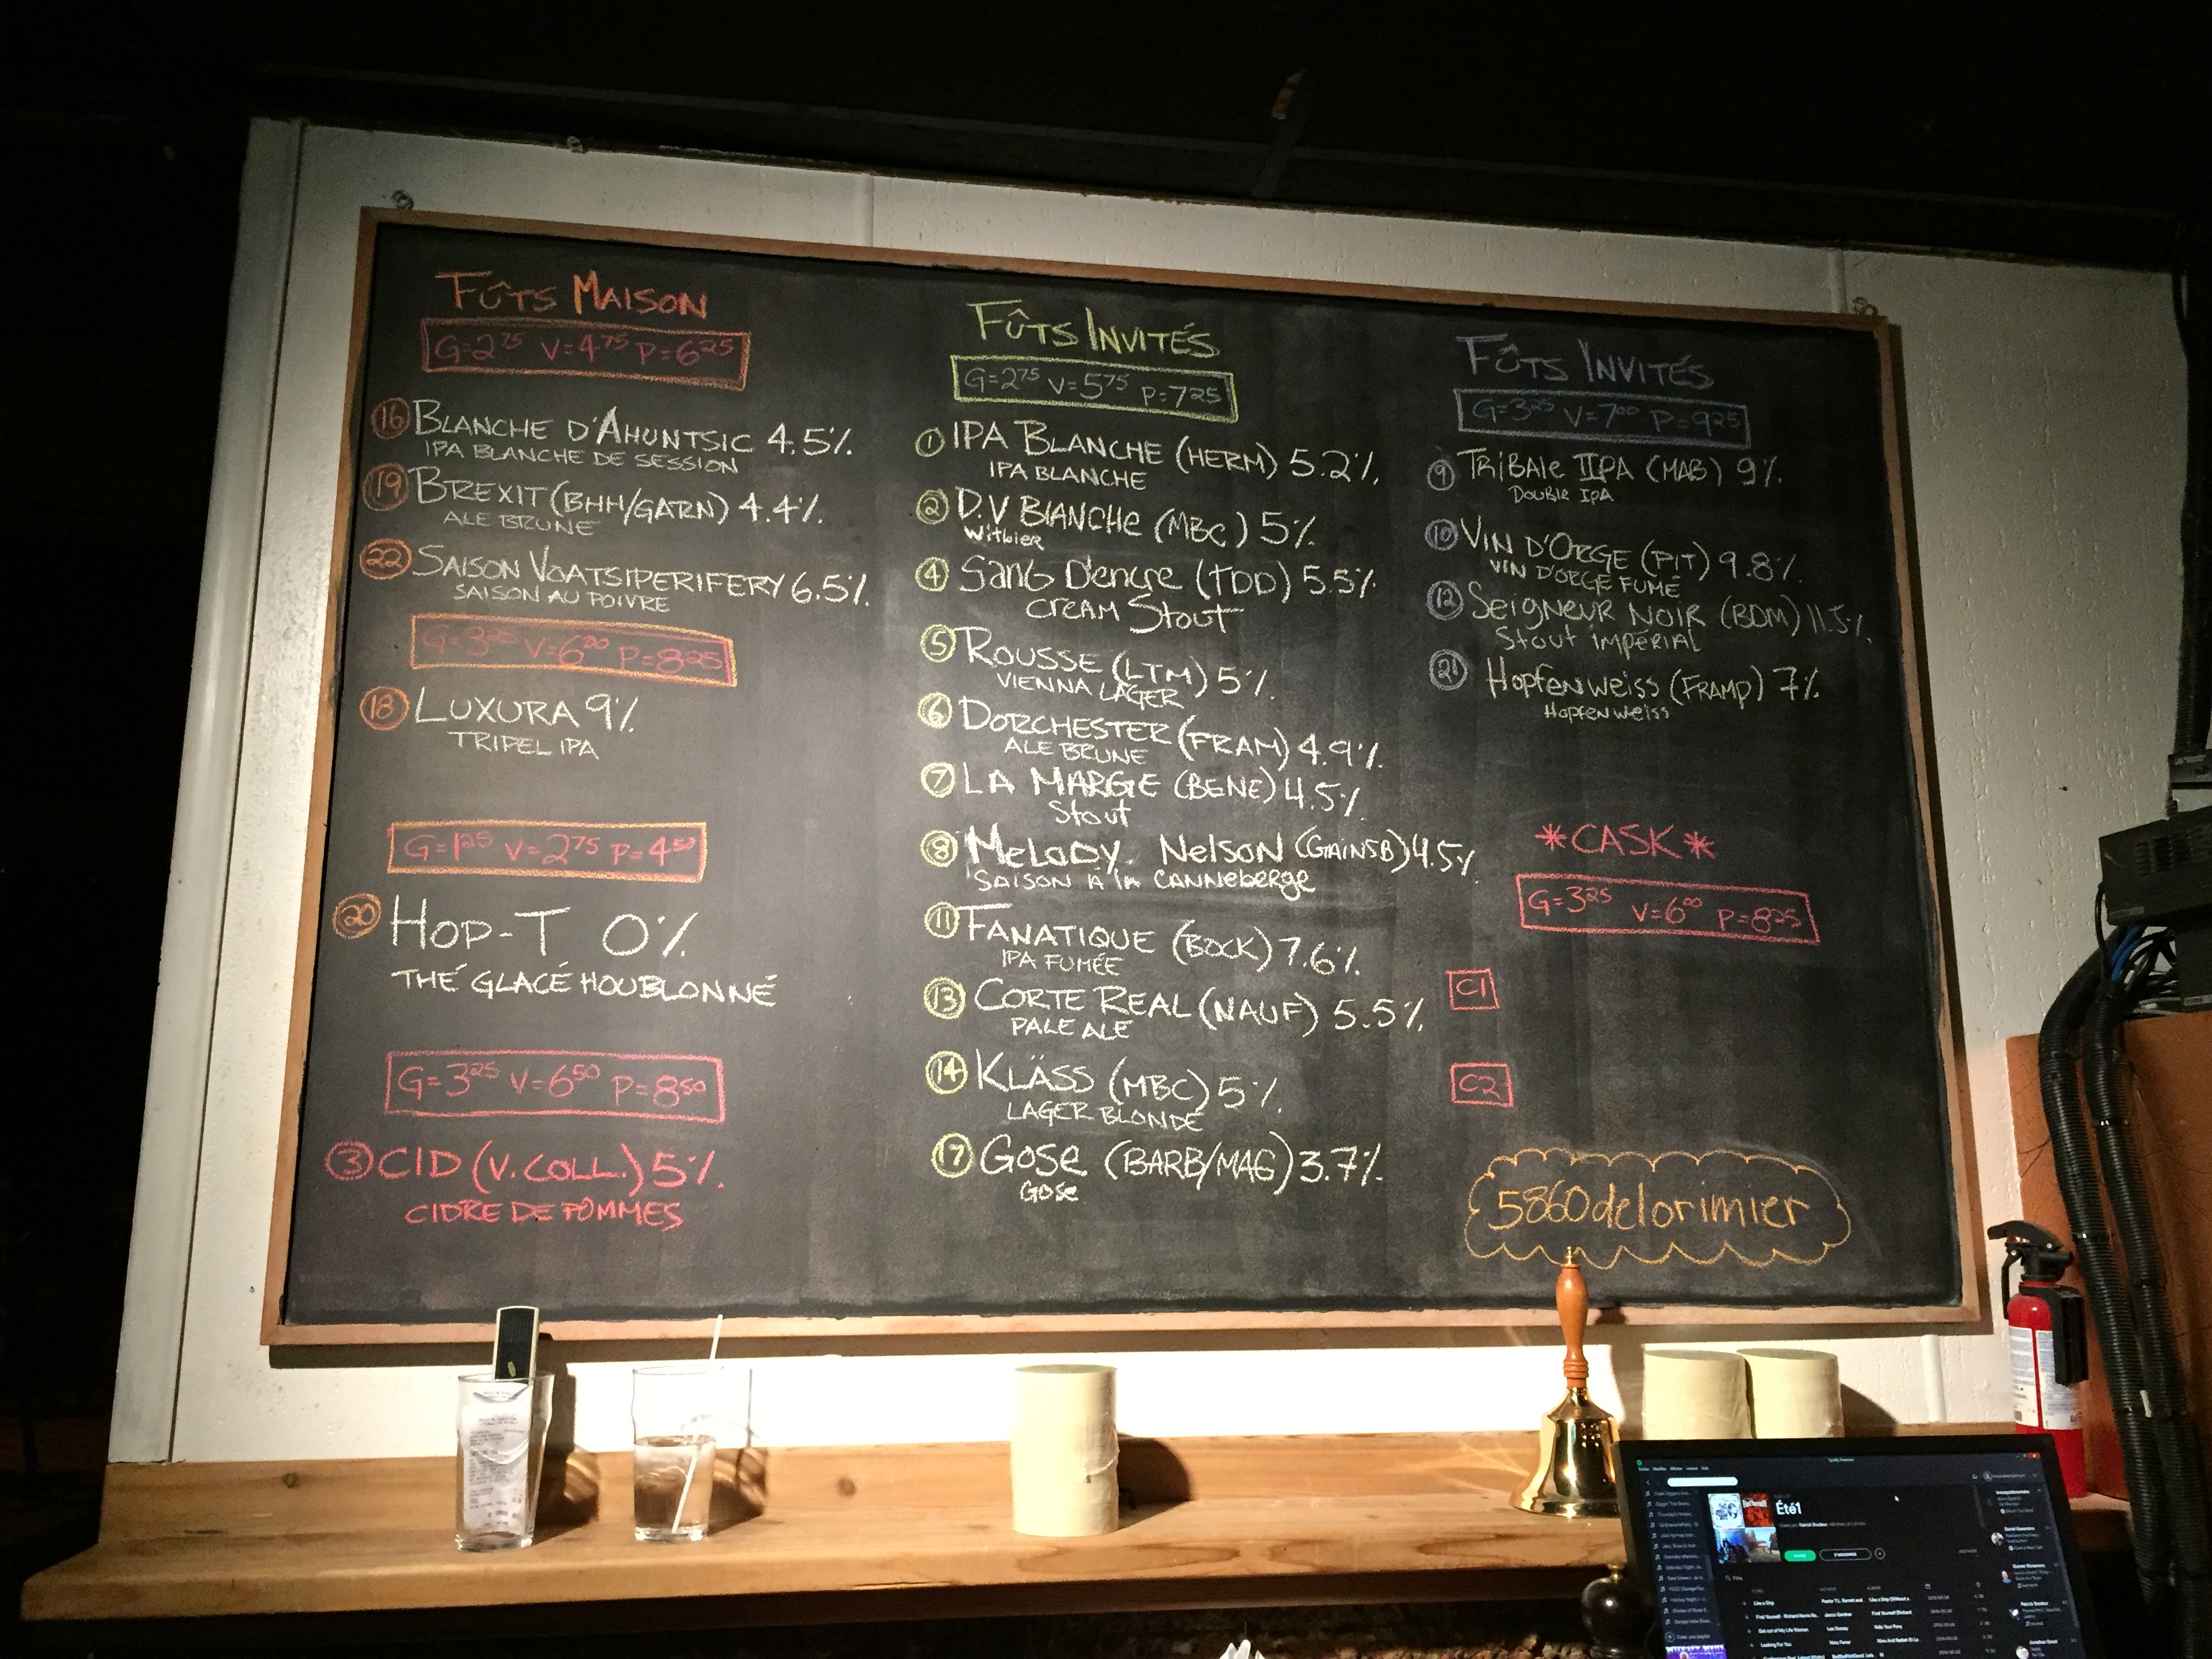 FÛTS MAISON
G=2.75 V=4.75 P=6.25
16 BLANCHE D'AHUNTSIC 4.5%
IPA BLANCHE DE SESSION
19 BREXIT (BHH/GARN) 4.4%
ALE BRUNE
22 SAISON VOATSIPERIFERY 6.5%
SAISON AU POIVRE
G=3.25 V=6.00 P=8.25
18 LUXURA 9%
TRIPEL IPA
G=1.25 V=2.75 P=4.50
20 HOP-T 0%
THÉ GLACÉ HOUBLONNÉ
G=3.25 V=6.50 P=8.50
3 CID (V. COLL.) 5%
CIDRE DE POMMES
FÛTS INVITÉS
G=2.75 V=5.75 P=7.25
1 IPA BLANCHE (HERM) 5.2%
IPA BLANCHE
2 D.V BLANCHE (MBC) 5%
Witbier
4 SANG D'encre (TDD) 5.5%
CREAM Stout
5 ROUSSE (LTM) 5%
VIENNA LAGER
6 DORCHESTER (FRAM) 4.9%
ALE BRUNE
7 LA MARGE (BENE) 4.5%
Stout
8 MELODY NELSON (GAINSB) 4.5%
SAISON À LA CANNEBERGE
11 FANATIQUE (BOCK) 7.6%
IPA FUMÉE
13 CORTE REAL (NAUF) 5.5%
PALE ALE
14 KLÄSS (MBC) 5%
LAGER BLONDE
17 GOSE (BARB/MAG) 3.7%
GOSE
FÛTS INVITÉS
G=3.25 V=7.00 P=9.25
9 TRIBALE IIPA (MAB) 9%
DOUBLE IPA
10 VIN D'ORGE (PIT) 9.8%
VIN D'ORGE FUMÉ
12 SEIGNEUR NOIR (BDM) 11.5%
Stout impérial
21 Hopfenweiss (FRAMP) 7%
Hopfenweiss
*CASK*
G=3.25 V=6.00 P=8.25
C1
C2
5860delorimier
Été1
Like a Ship
Get out of My Life Woman
Lee Dorsey
Looking For You
Nino Ferrer